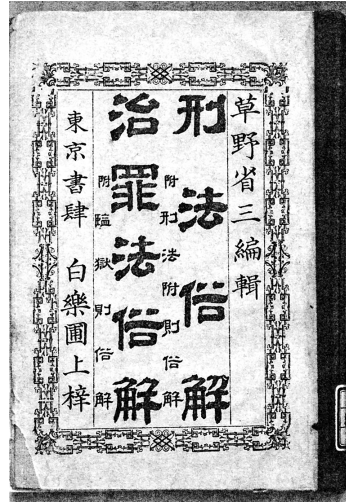 草野省三編輯
刑法俗解
附刑法附則俗解
治罪法俗解
附監獄則俗解
東京書肆 白樂圃上梓